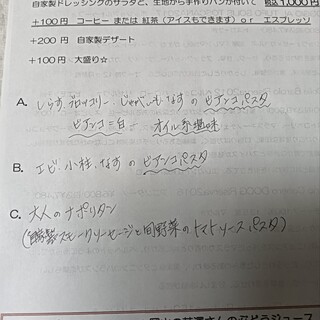 自家製ドレッシングのサラダと、生地から手作りパンが付いて 税込1,000円
+100円 コーヒー または 紅茶(アイスもできます)or エスプレッソ
+200円 自家製デザート
+100円 大盛り☆
A. しらす、ブロッコリー じゃがいも なす の ビアンコパスタ
ビアンコ=白 オイル系塩味
B. エビ、小柱、なす の ビアンコパスタ
C. 大人のナポリタン
(自家製スモークソーセージと旬野菜のトマトソースパスタ)
さんのぶどうジュース